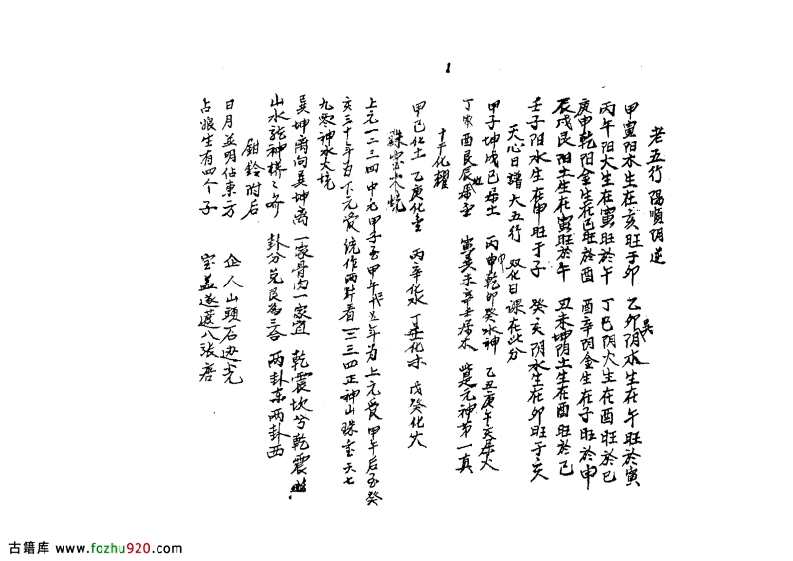 1
老五行 陽順阴逆
甲寅阳木生在亥旺于卯 乙卯巽阴木生在午旺於寅
丙午阳火生在寅旺於午 丁巳阴火生在酉旺於巳
庚申乾阳金生在巳旺於酉 酉辛阴金生在子旺於申
辰戌艮阳土生在寅旺於午 丑未坤阴土生在酉旺於巳
壬子阳水生在申旺于子 癸亥阴水生在卯旺于亥
天心日 大五行 双化日课在此分
甲子坤戊己 土 丙申乾卯癸水神 乙丑庚午 火
丁 酉艮辰 寅巽未辛壬 木 是元神第一真
十干化耀
甲己化土 乙庚化金 丙辛化水 丁壬化木 戊癸化火
珠宝火坑
上元一二三四中元甲子至甲午 年为上元爰 甲午后至癸
亥三十年为下元爰 统作两 看 一二三四正神山珠宝六七
九零神水火坑
巽坤离向巽坤离 一家骨肉一家宜 乾震坎兮乾震
山水龍神 卦分兑艮为三合 两卦东两卦西
鉗鈴附后
日月並明佔東方 企人山頭石边光
占 生有四个子 宝盖 八張
古籍库 www.fozhu920.com